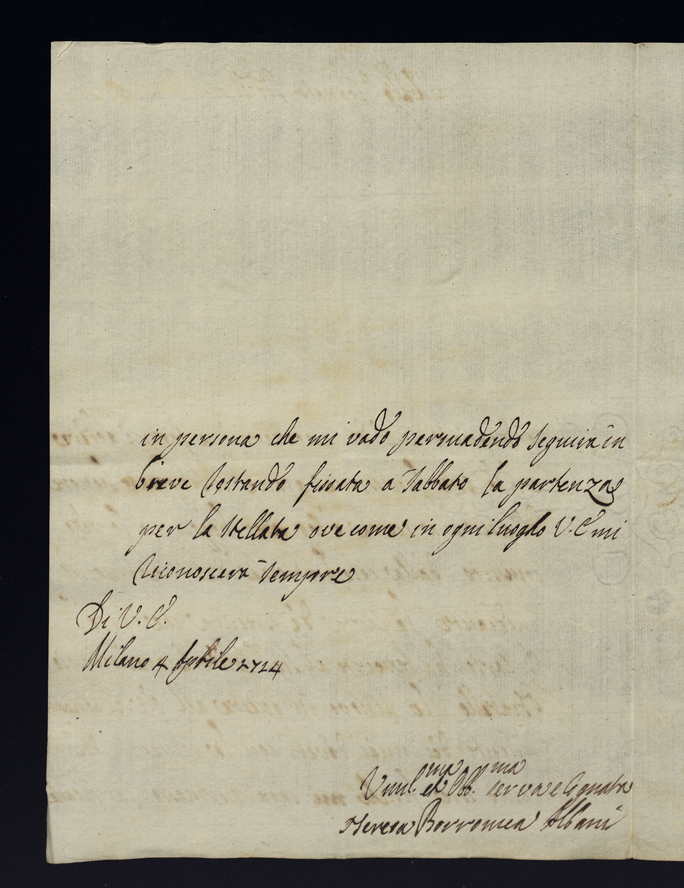 in persona che mi vado persuadendo seguirà in
breve restando fissata a Sabbato la partenza
per la Stellata ove come in ogni luogho V. E. mi
riconoscerà sempre
Di V. E.
Milano 4 Aprile 1724
Umil.ma et Obb.ma serva e Cognata
Teresa Borromea Albani